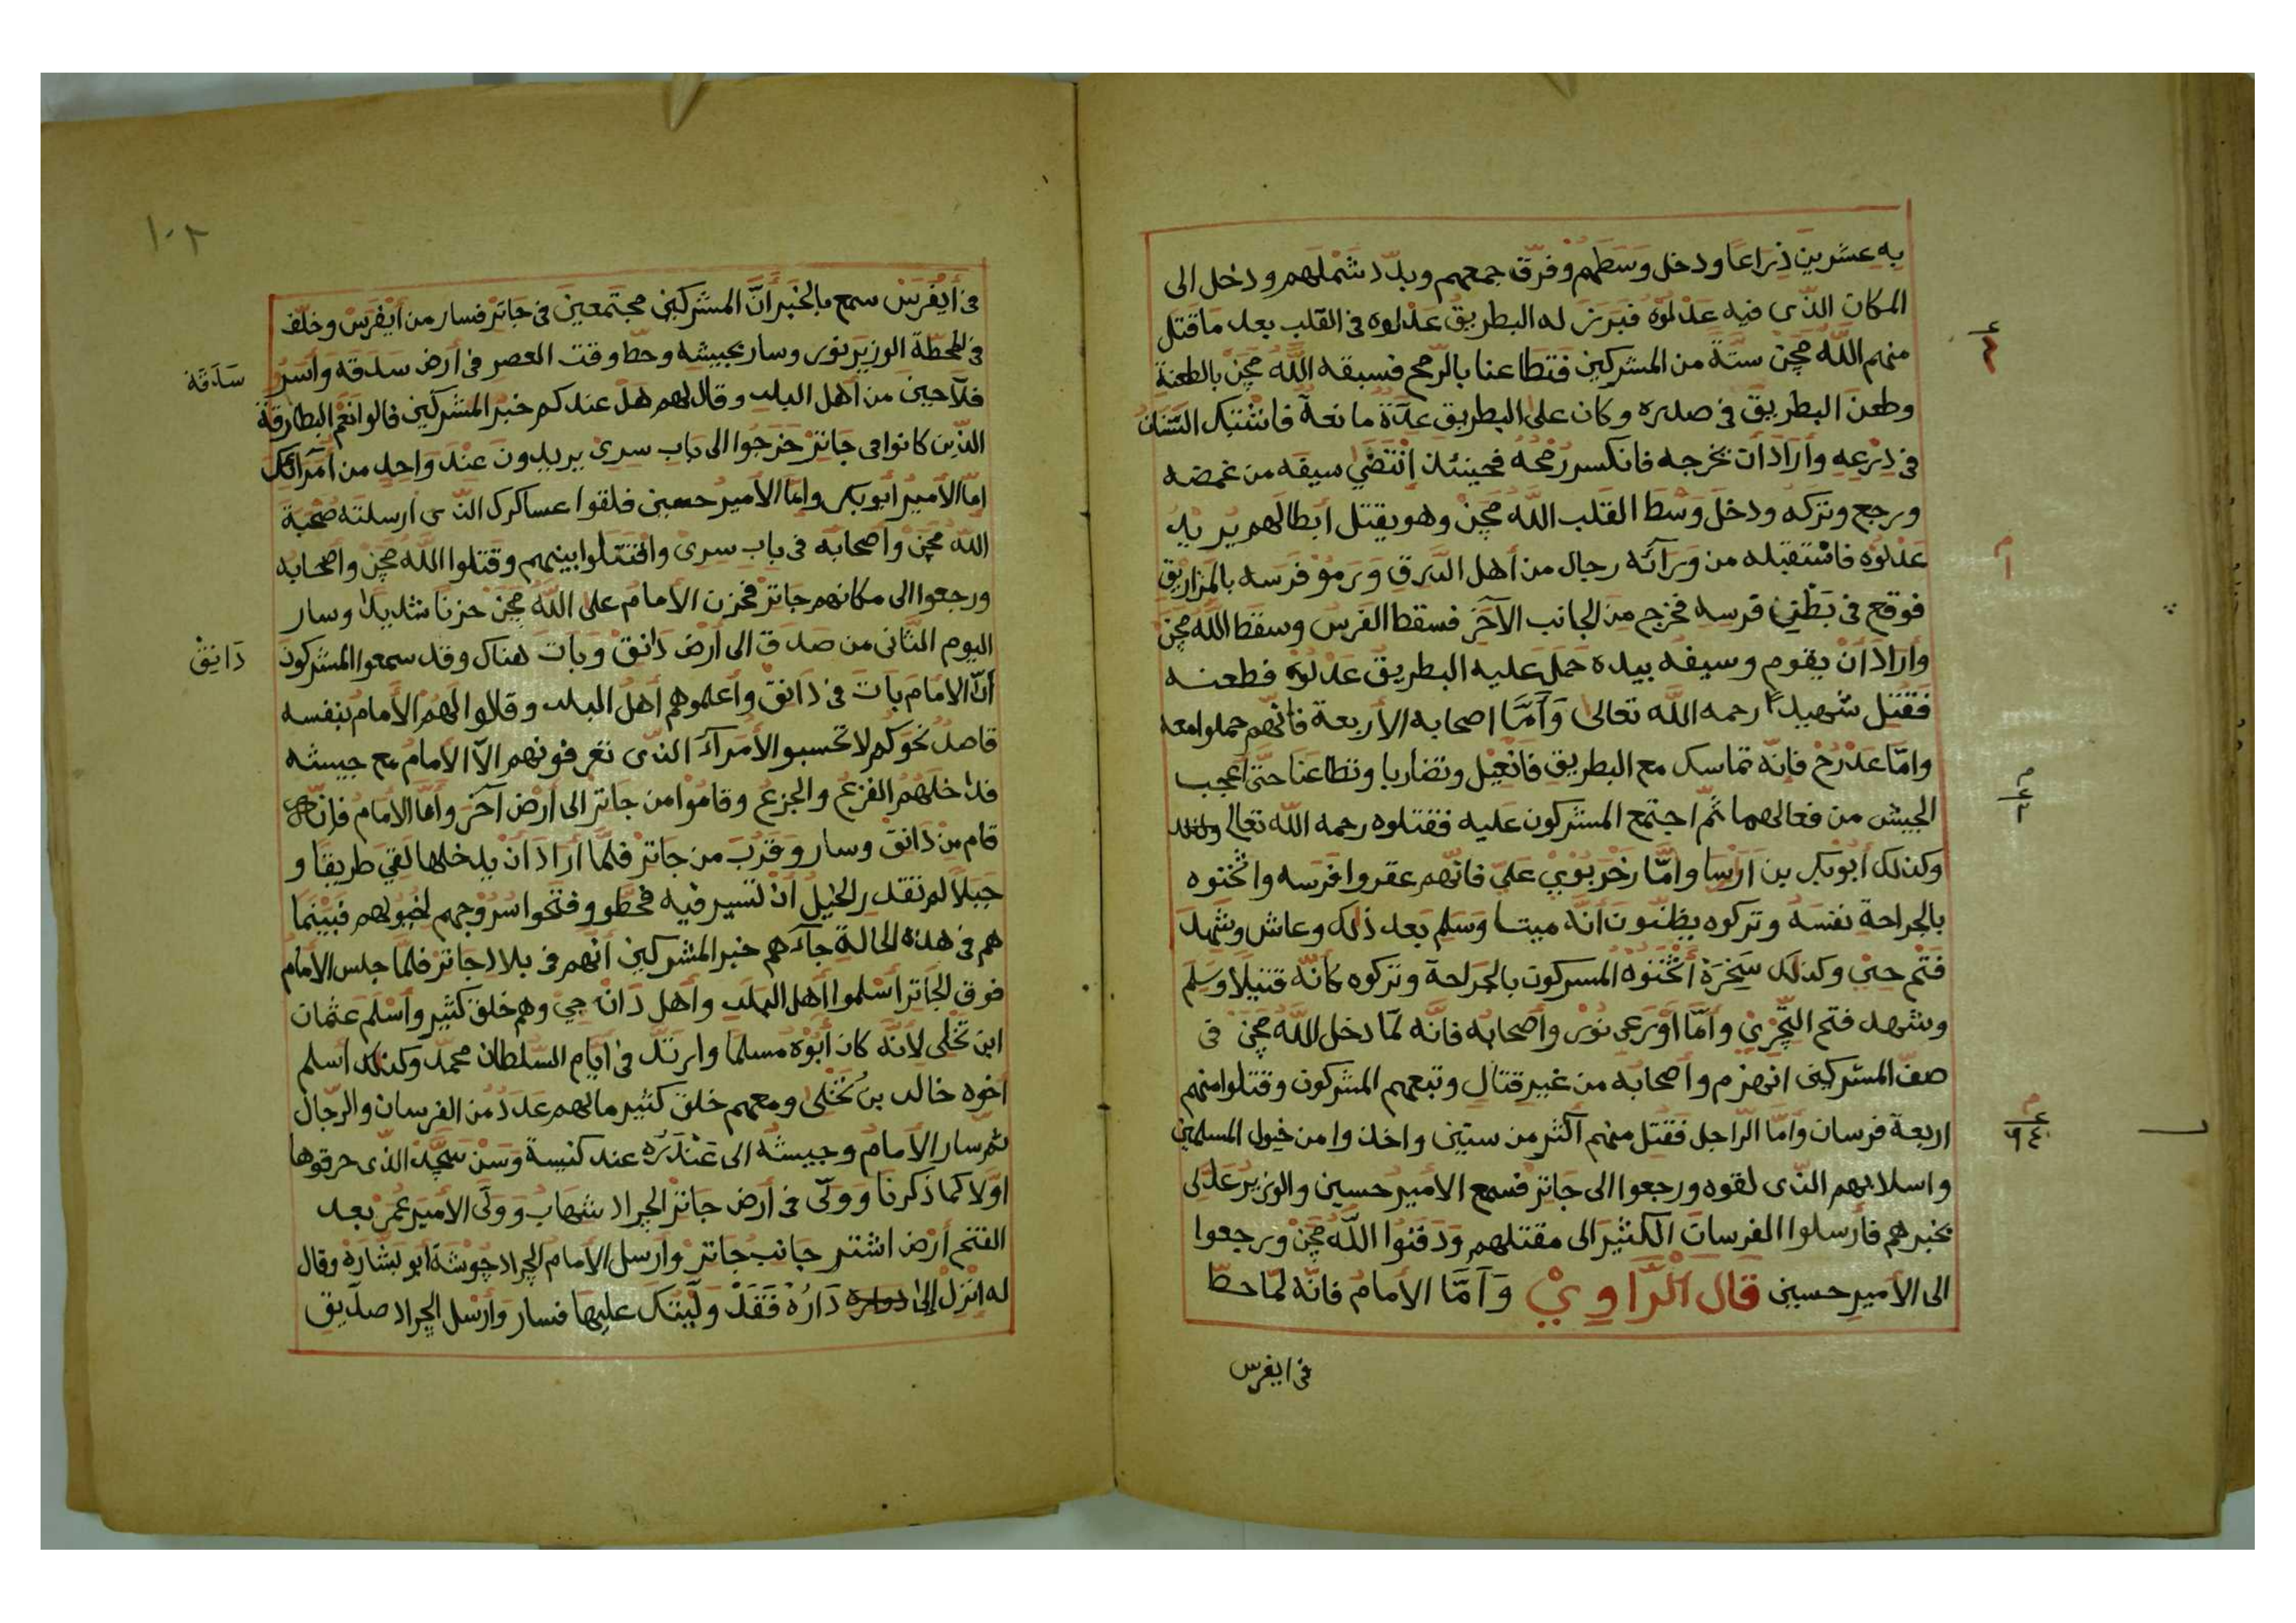 به عشرين ذراعا ودخل وسطهم وفرّق جمعهم وبدّد شملهم ودخل الى
المكان الذّى فيه عَدْلوُه فبرز له البطريقُ عَدْلوه فى القلب بعد ما قتل
منهم اللّه مچن ستّةً من المشركين فتطاعنا بالرّمح فسبقه اللّه مچن بالطعنة
وطعن البطريق فى صدره وكان على البطريق عدّة مانعة فاشتبك السّنان
فى دِرْعِه وأراد أن يخرجه فانكسر رُمْحُه فحينئذ انْتَضَى سيفه من غمضه
ورجع وتركه ودخل وَسْطَ القلب اللّه مچن وهو يقتل أبطالهم يريد
عَدْلُوه فاسْتقبله من ورآئه رجال من أهل الدّرق وَرموُ فرسه بالمزاريق
فوقع فى بَطْنِ فرسه فخرج مِنَ الجانب الآخر فسقط الفرس وسقط اللّه مچن
وأراد أنْ يقوم وسيفه بيده حمل عليه البطريقُ عَدْلُوه فطعنه
فَقُتل شهيدًا رحمه اللّه تعالى وَأمّا اصحابه الأربعة فانّهم حملوا معه
وامّا عَدْرُحْ فإنّه تماسك مع البطريق فانْعِيْل وتضاربا وتطاعنا حتّى أعجب
الجيش من فعالهما ثمّ اجتمع المشركون عليه فقتلوه رحمه اللّه تعالى
وكذلك أبوُبكر بن أرْسا وامّا رَخْرَبُوْيِ عَلِى فانّهم عقروا فرسه واثْخنوه
بالجراحة نفسَهُ وتركوه يظنّون أنّه ميتا وَسَلِم بعد ذلك وعاش وشَهِدَ
فتح حبى وكذلك سَخَرَةْ أثْخَنوُهُ المسركون بالجراحة وتركوه كأنّه قتيلًا وسلم
وشهد فتح التّجْرِىْ وأمّا أوْرَعى نوُر وأصحابه فانّه لمّا دخل اللّه مچن فى
صفّ المشركين انهزم وأصحابه من غير قتال وتبعهم المشركون وقتلوا منهم
اربعة فرسان وأمّا الرّاجل فقُتل منهم أكثر من ستين واخذوا من خيول المسلمين
واسلابهم الذّى لقوه ورجعوا الى جاتر فسمع الأمير حسين والوزير عَدْلى
بخبرهم فأرسلوا الفرسان الكثير الى مقتلهم وَدَفنوُا اللّه مچن ورجعوا
الى الأمير حسين قال الرّاوي وَأمّا الأمامُ فانّه لمّا حطّ
فى ايفرس
١٠٢
فى أيْفَرَسْ سمع بالخبر أنّ المشركين مجتمعين فى جاتر فسار من أيْفَرَسْ وخلّف
فى المحطّة الوزير نور وسار بجيشه وحطّ وقت العصر فى أرض سَدَقه وأسرُ
سَدَقَهْ
فلّاحين من أهل البلد وقال لهم هل عندكم خبر المشركين فالوا نعم البطارقة
الذّين كانوا فى جاتر خرجوا الى باب سرى يريدون عند واحد من أمرآئك
امّا الأمير أبوبكر وامّا الأمير حسين فلقوا عساكرك الذّى أرسلته صحبة
اللّه مچن وأصحابه فى باب سرى واقتتلوا بينهم وقتلوا اللّه مچن واصحابه
ورجعوا الى مكانهم جاتر فحزن الأمام على اللّه مچن حزنا شديدا وسار
اليوم الثّانى من صدق الى أرض دانق وبات هناك وقد سمعوا المشركون
دَانِقْ
أنّ الامام بات فى دانق وأعلموهم أهل البلد وقالوا لهم الأمام بنفسه
قاصدُ نحوكم لا تحسبو الأمرآء الذّى تعرفونهم الّا الأمام مع جيشه
فداخلهم الفزع والجزع وقاموا من جاتر الى أرض آخر وأمّا الأمام فإنّه
قام من دَانق وسار وقرب من جاتر فلمّا أراد أن يدخلها لقي طريقا و
جبلا لم تقدر الخيل أن تسير فيه فحطّو وفتحوا سروجهم لخيولهم فبينما
هم فى هذه الحالة جآءهم خبر المشركين أنهم فى بلاد جاتر فلمّا جلس الأمام
فوق الجاتر أسلموا أهل البلد وأهل دَانْ جى وهم خلق كثير وأسلم عثمان
ابن تَخْلى لأنّه كان أبوه مسلما وارتدّ فى أيّام السّلطان محمّد وكذلك أسلم
أخوه خالد بن تَخْلى ومعهم خلق كثير مالهم عدد من الفرسان والرّجال
ثمّ سار الأمام وجيشه الى عَنْدَرَه عند كنيسة وَسَنْ سَجَّدْ الذّى حرقوها
اوّلا كما ذكرنا وولّى فى أرض جاتر الجراد شهاب وولّى الأمير عمر بعد
الفتح أرض اشتر جانب جاتر وارسل الأمام الجراد جوُشَه أبو بشارَهْ وقال
له انزل إلى دَارُه فَقَدْ وَلّيْتُك عليها فسار وَأرسل الجراد صدّيق